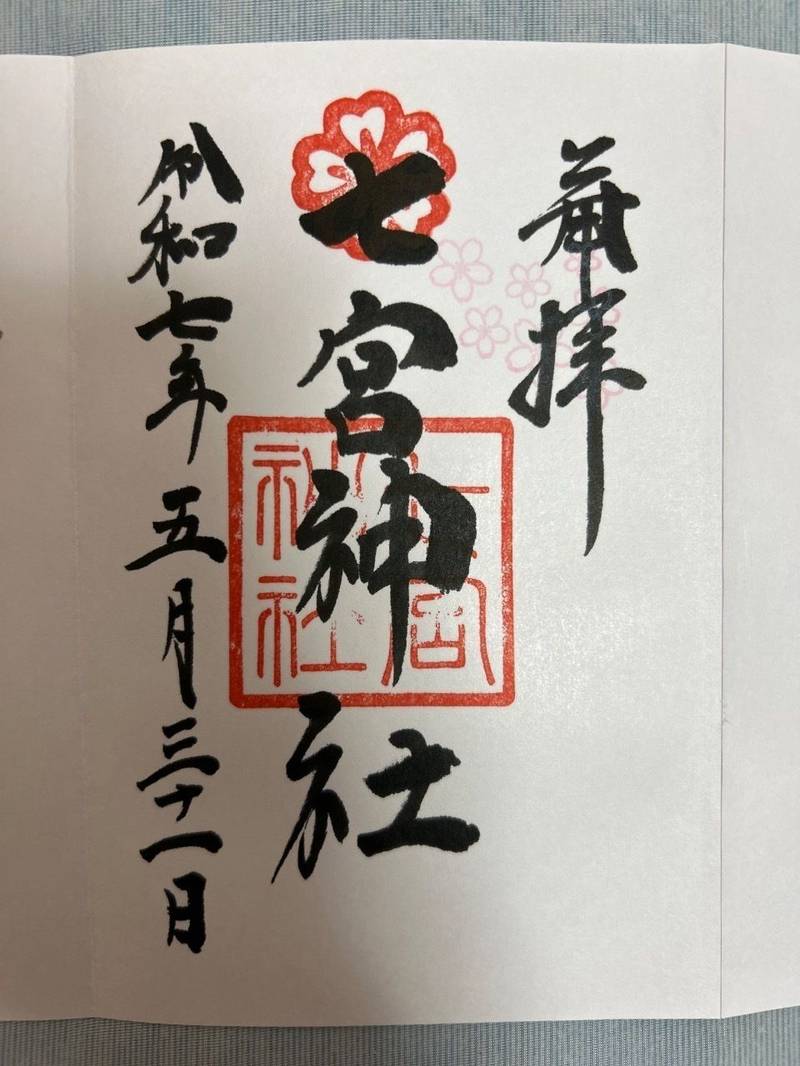 奉拝
七宮神社
七宮
神社
令和七年五月三十一日